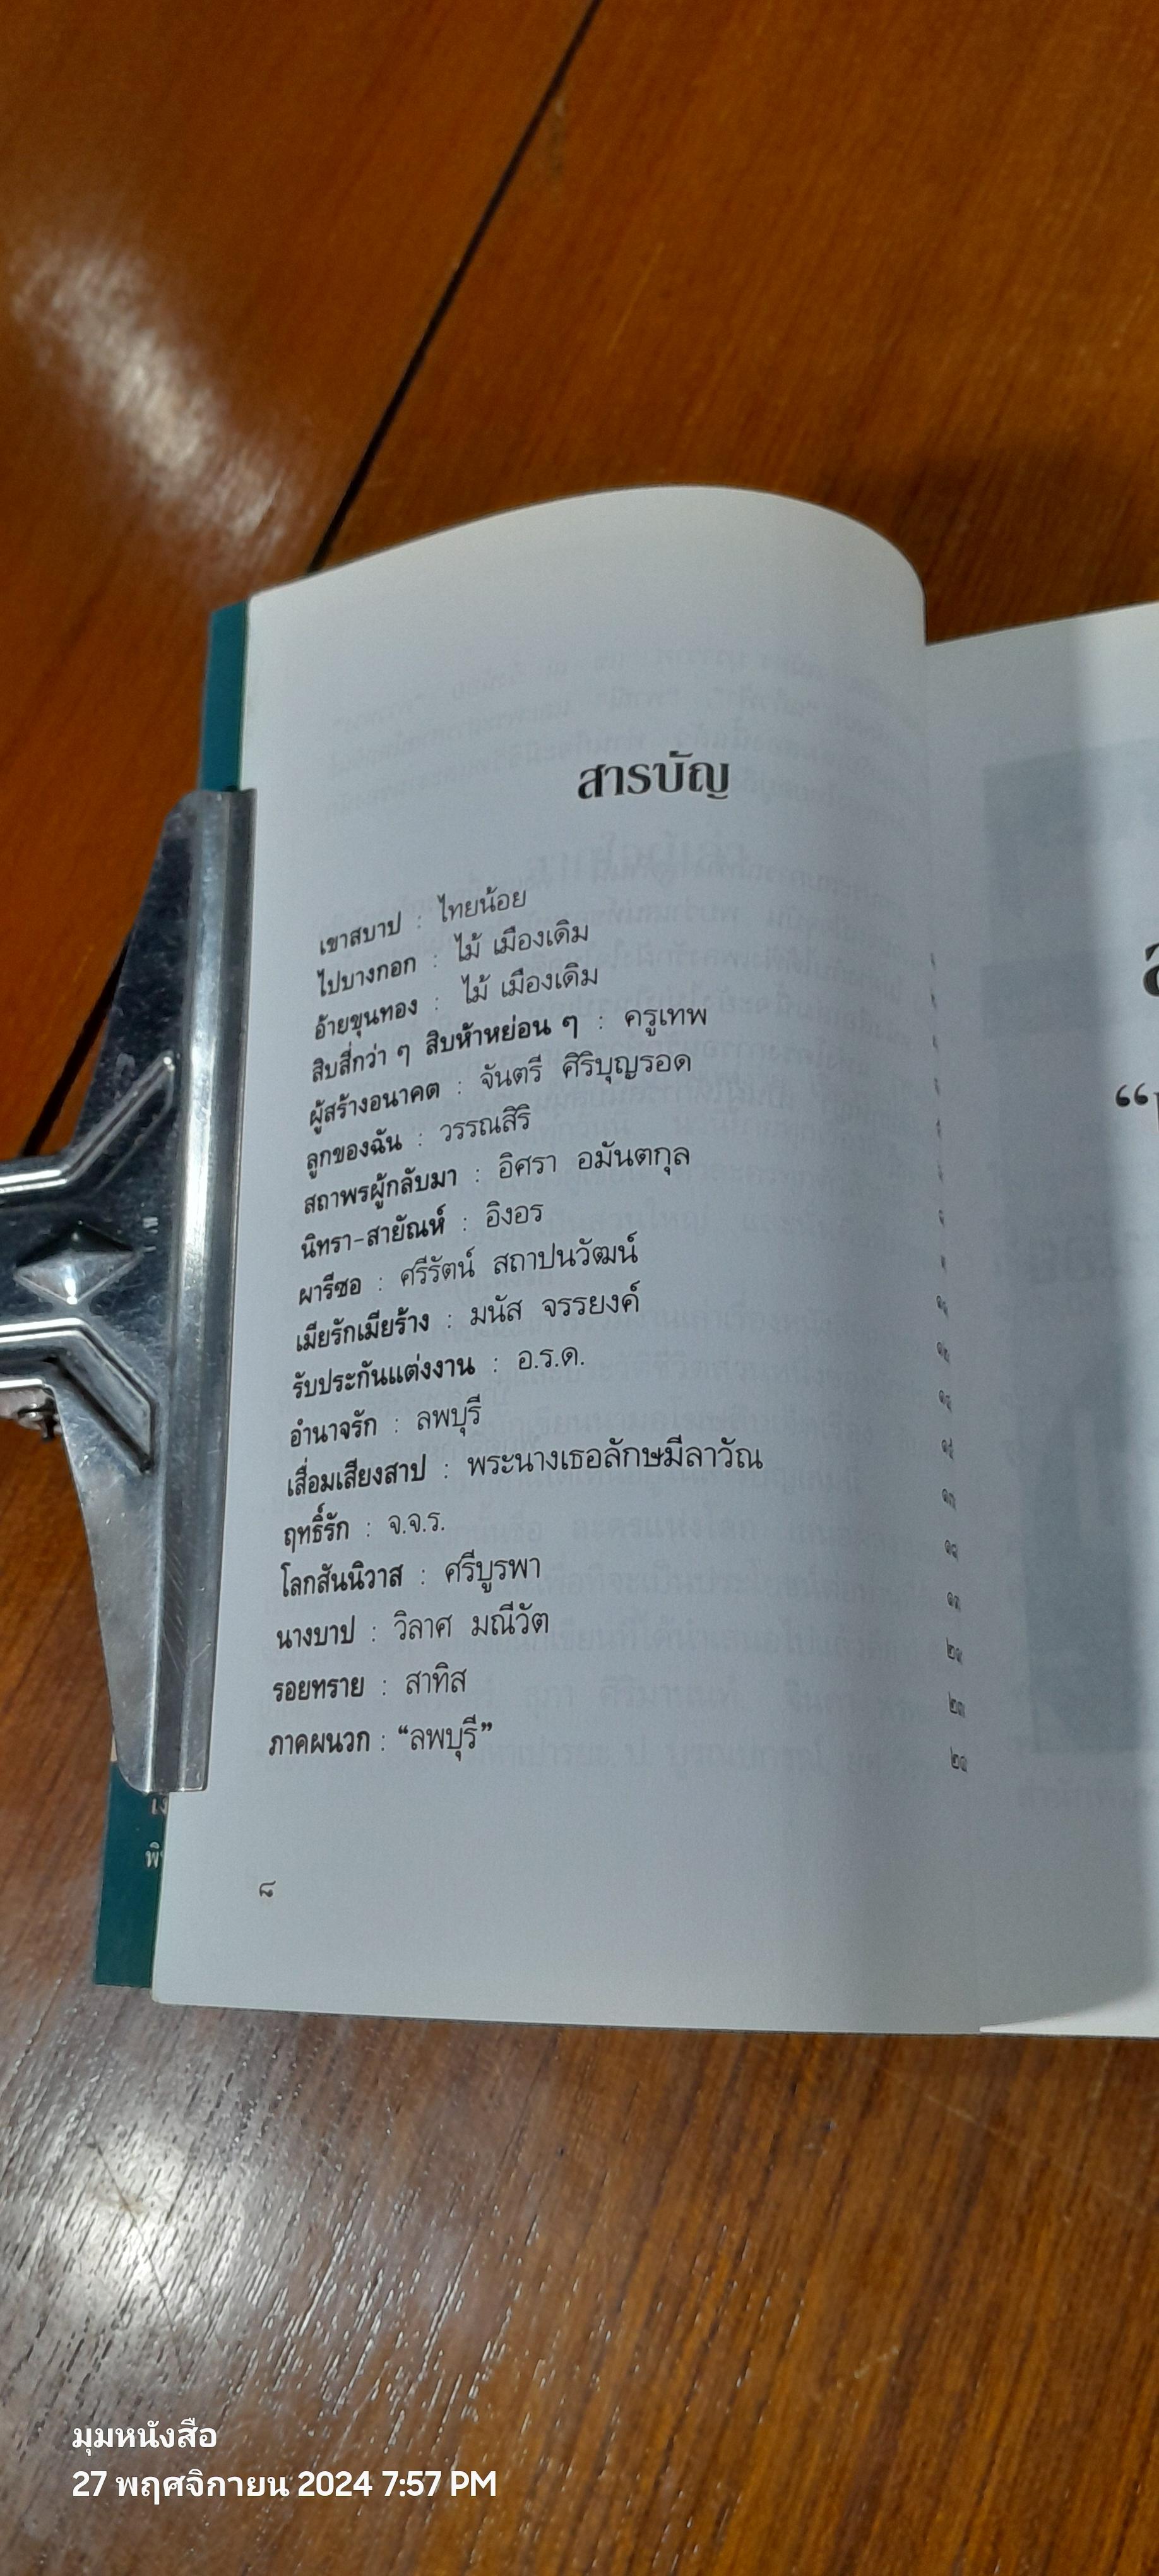 สารบัญ
เขาสบาป : ไทยน้อย
ไปบางกอก : ไม้ เมืองเดิม
อ้ายขุนทอง : ไม้ เมืองเดิม
สิบสี่กว่า ๆ สิบห้าหย่อน ๆ : ครูเทพ
ผู้สร้างอนาคต : จันตรี ศิริบุญรอด
ลูกของฉัน : วรรณสิริ
สถาพรผู้กลับมา : อิศรา อมันตกุล
นิทรา-สายัณห์ : อิงอร
ผารีซอ : ศรีรัตน์ สถาปนวัฒน์
เมียรักเมียร้าง : มนัส จรรยงค์
รับประกันแต่งงาน : อ.ร.ด.
อำนาจรัก : ลพบุรี
เสื่อมเสียงสาป : พระนางเธอลักษมีลาวัณ
ฤทธิ์รัก : จ.จ.ร.
โลกสันนิวาส : ศรีบูรพา
นางบาป : วิลาศ มณีวัต
รอยทราย : สาทิส
ภาคผนวก : “ลพบุรี”
๘
มุมหนังสือ
27 พฤศจิกายน 2024 7:57 PM